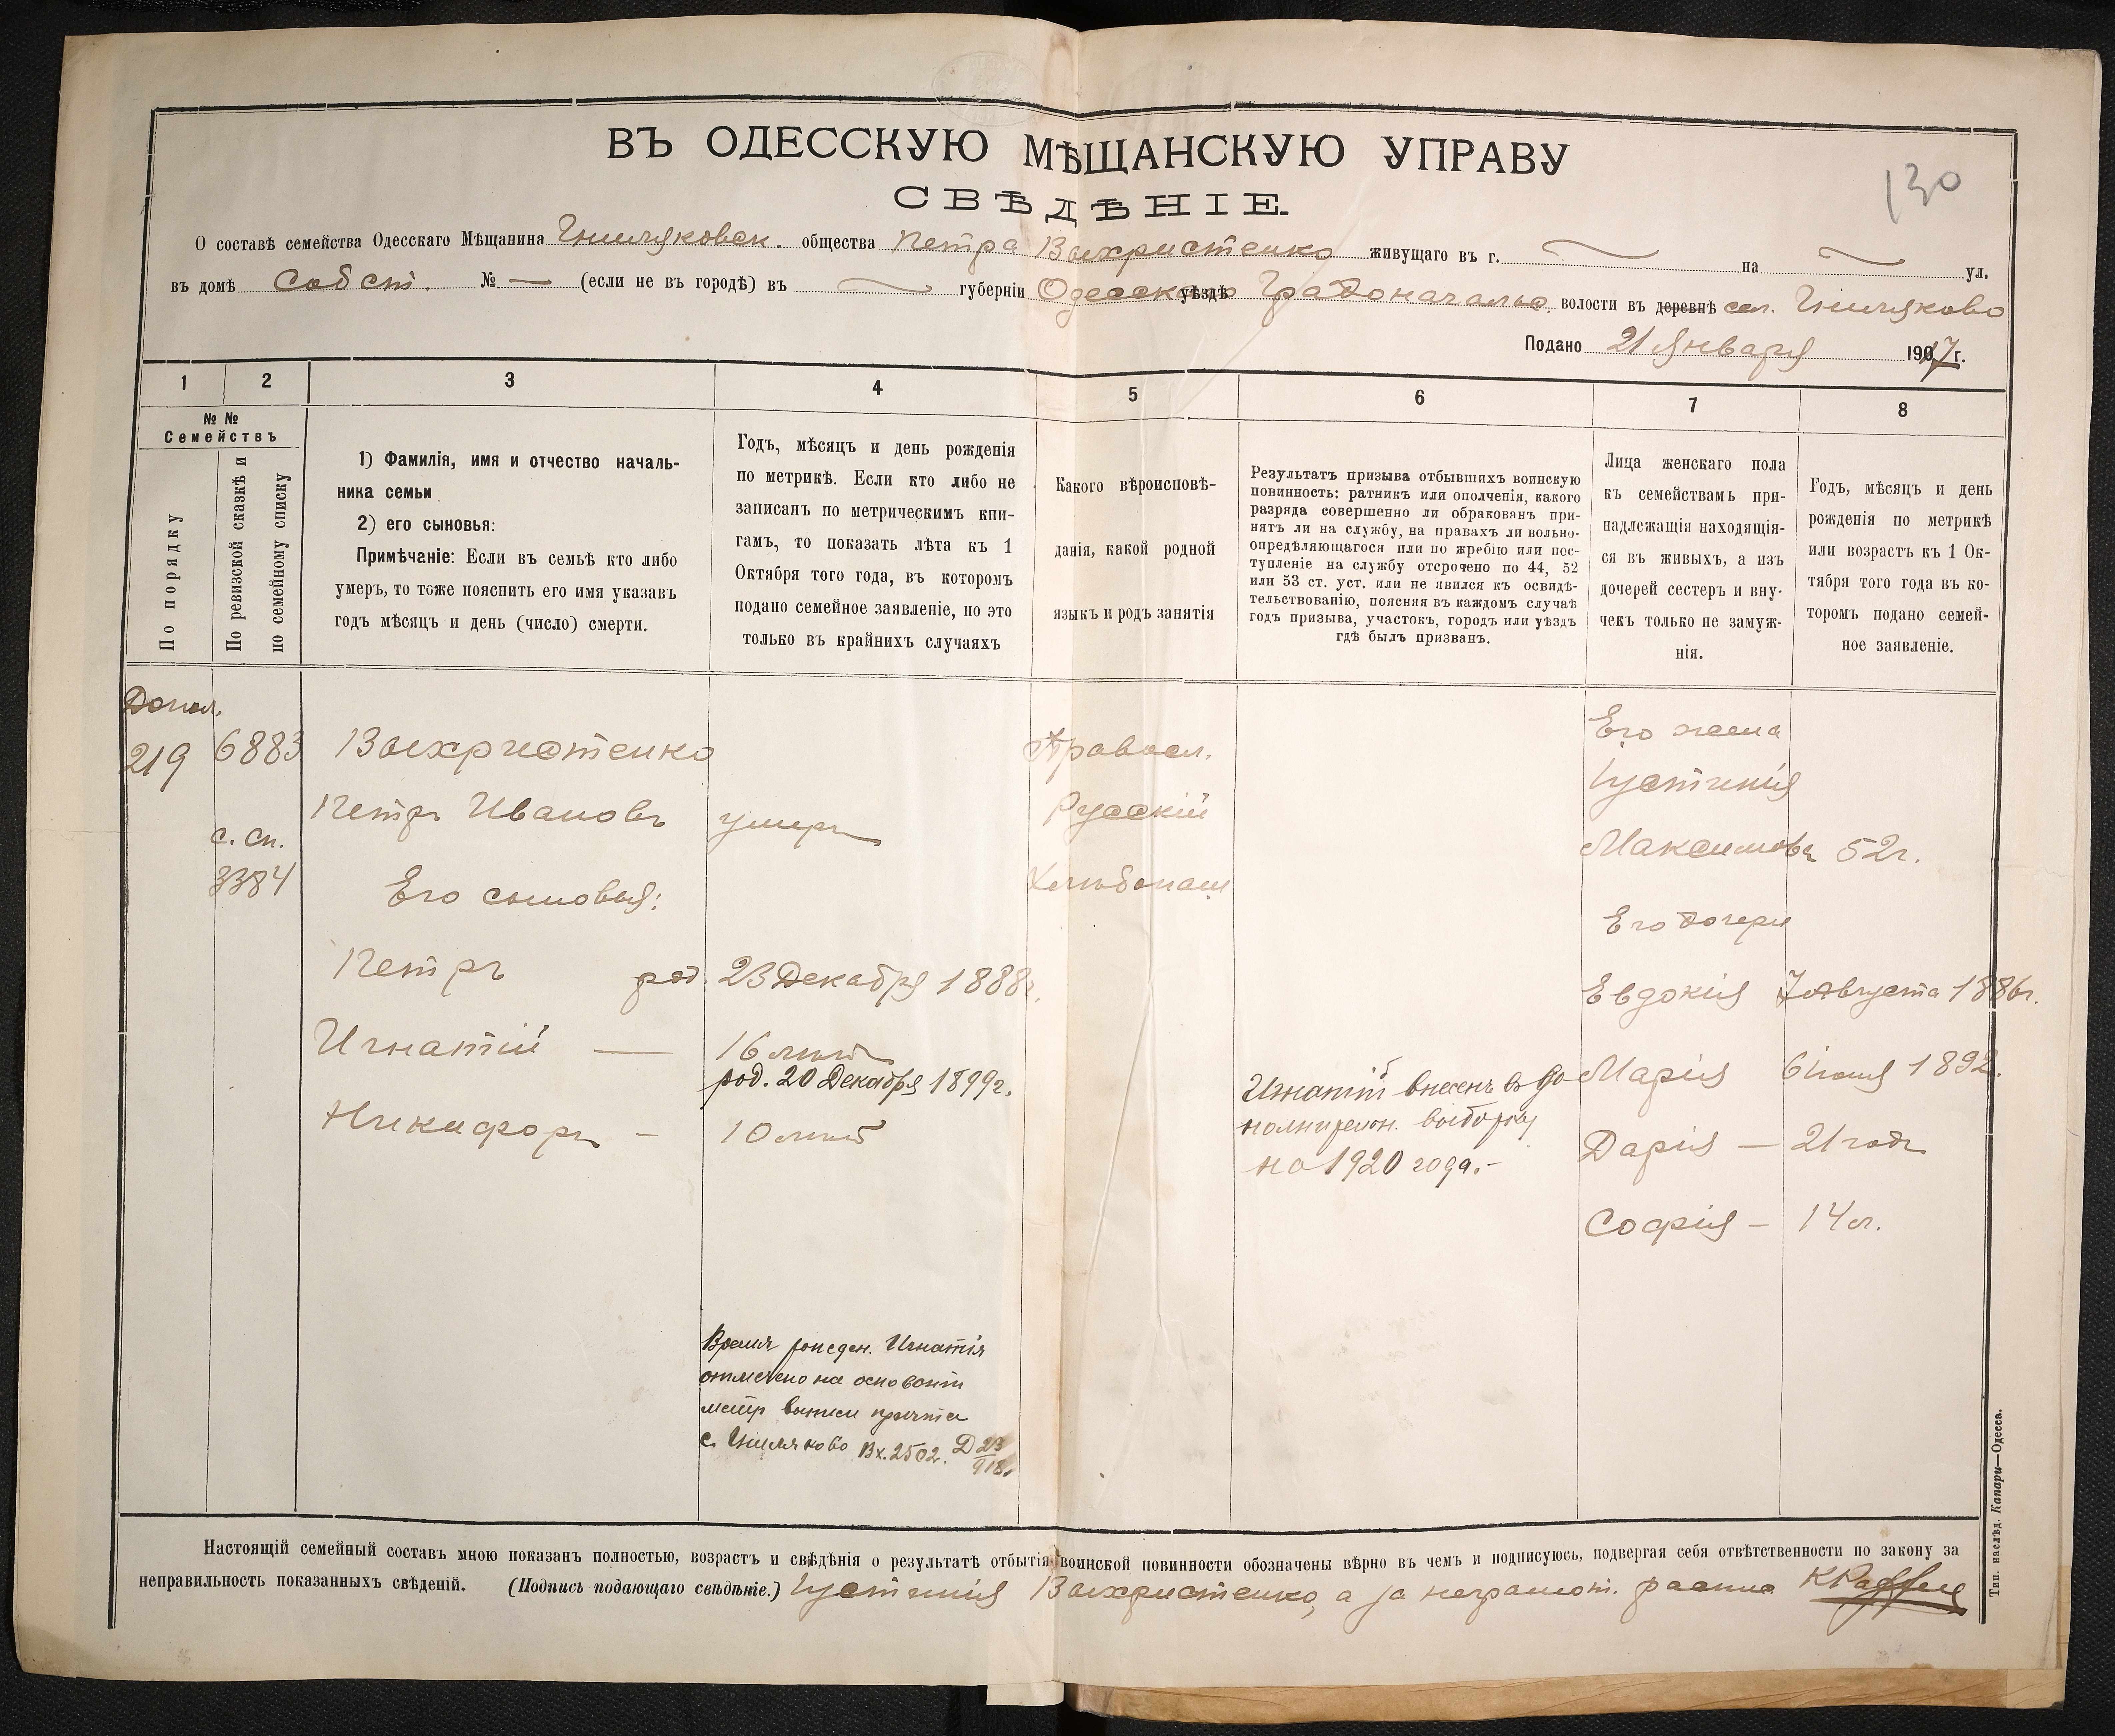 ВЪ ОДЕССКУЮ МѢЩАНСКУЮ УПРАВУ
130
СВѢДѢНІЕ.
О составѣ семейства Одесскаго Мѣщанина Гниляковск. общества Петра Выхристенко живущаго въ г. на ул.
въ домѣ Собст. № — (если не въ городѣ) въ губерніи Одесскаго уѣздѣ Градоначальс. волости въ деревнѣ сел. Гниляково
Подано 21 Января 1917 г.
1 2 3 4 5 6 7 8
№ №
Семействъ
По порядку
По ревизской сказкѣ и
по семейному списку
1) Фамилія, имя и отчество началь-
ника семьи
2) его сыновья:
Примѣчаніе: Если въ семьѣ кто либо
умеръ, то тоже пояснить его имя указавъ
годъ мѣсяцъ и день (число) смерти.
Годъ, мѣсяцъ и день рожденія
по метрикѣ. Если кто либо не
записанъ по метрическимъ кни-
гамъ, то показать лѣта къ 1
Октября того года, въ которомъ
подано семейное заявленіе, но это
только въ крайнихъ случаяхъ
Какого вѣроисповѣ-
данія, какой родной
языкъ и родъ занятія
Результатъ призыва отбывшихъ воинскую
повинность: ратникъ или ополченія, какого
разряда совершенно ли обракованъ при-
нятъ ли на службу, на правахъ ли вольно-
опредѣляющагося или по жребію или пос-
тупленіе на службу отсрочено по 44, 52
или 53 ст. уст. или не явился къ освидѣ-
тельствованію, поясняя въ каждомъ случаѣ
годъ призыва, участокъ, городъ или уѣздъ
гдѣ былъ призванъ.
Лица женскаго пола
къ семействамъ при-
надлежащія находящія-
ся въ живыхъ, а изъ
дочерей сестеръ и вну-
чекъ только не замуж-
нія.
Годъ, мѣсяцъ и день
рожденія по метрикѣ
или возрастъ къ 1 Ок-
тября того года въ ко-
торомъ подано семей-
ное заявленіе.
Допол.
219
6883
с. сп.
3384
Выхристенко
Петръ Ивановъ умеръ
Его сыновья:
Петръ род. 23 Декабря 1888г.
Игнатій — 16 лѣтъ
род. 20 Декабря 1899г.
Никифоръ — 10 лѣтъ
Время рожден. Игнатія
отмѣчено на основаніи
метр выписи причта
с. Гниляково Вх. 2502. Д 23/918.
Правосл.
Русскій
Хлѣбопаш
Игнатій внесенъ въ до-
полнителн. выборку
на 1920 года.-
Его жена
Іустинія
Максимова 52г.
Его дочери
Евдокія 7 Августа 1886г.
Марія 6 іюня 1892.
Дарія — 21 годъ
Софія — 14 л.
Настоящій семейный составъ мною показанъ полностью, возрастъ и свѣдѣнія о результатѣ отбытія воинской повинности обозначены вѣрно въ чемъ и подписуюсь, подвергая себя отвѣтственности по закону за
неправильность показанныхъ свѣденій. (Подпись подающаго свѣдѣніе.) Іустинія Выхристенко, а за неграмот. распис
Тип. наслѣд. Капари—Одесса.